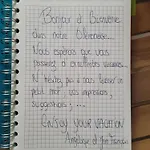 Bonjour et Bienvenue
dans notre Résidence...
Nous espérons que vous
passerez d'excellentes vacances
N'hésitez pas à nous laisser un
petit mot vos impressions,
suggestions; ...
ENJOY YOUR VACATION